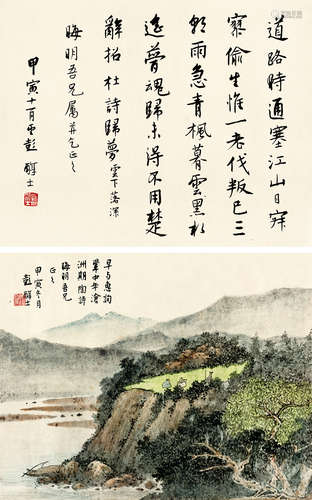 道路時通塞江山日寂
寥偷生惟一老伐叛已三
朝雨急青楓暮雲黑水
遙夢魂歸未得不用楚
辭招杜詩歸夢雲下落深
晦明吾兄屬并乞正之
甲寅十一月彭醇士
早与惠詢
輩中年滄
洲期詩
晦明吾兄
正之
甲寅冬月
彭醇士